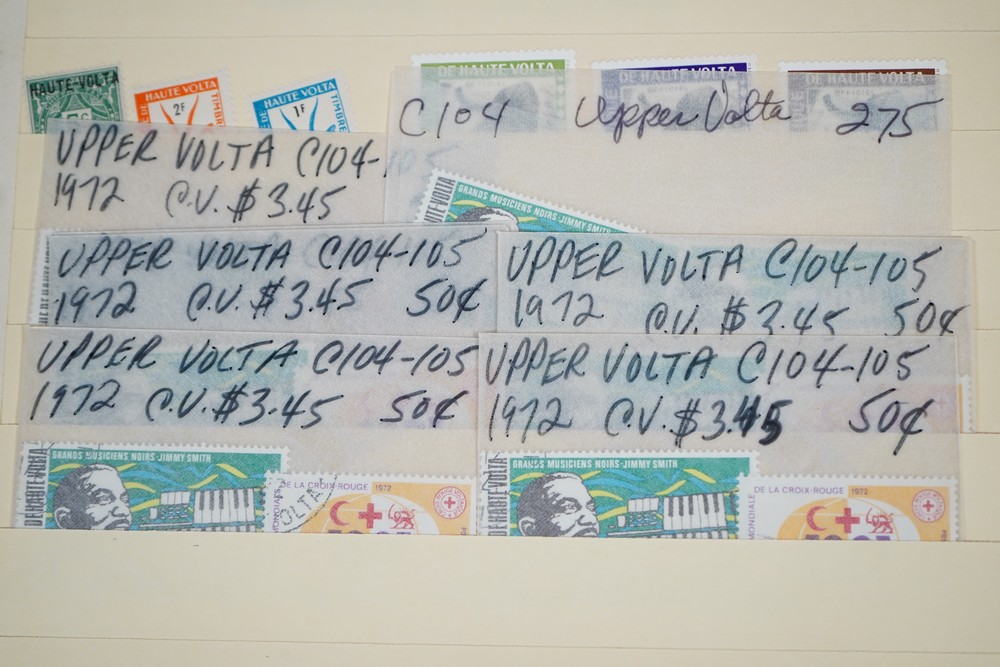 HAUTE-VOLTA
HAUTE VOLTA
2F
TIMBRE
DE HAUTE VOLTA
1F
TIMBRE
DE HAUTE VOLTA
DE HAUTE VOLTA
DE HAUTE VOLTA
C104 Upper Volta 275
UPPER VOLTA C104-105
1972 C.V. $3.45
HAUTE-VOLTA
GRANDS MUSICIENS NOIRS·JIMMY SMITH
UPPER VOLTA C104-105
1972 C.V. $3.45 50¢
UPPER VOLTA C104-105
1972 C.V. $3.45 50¢
UPPER VOLTA C104-105
1972 C.V. $3.45 50¢
UPPER VOLTA C104-105
1972 C.V. $3.45 50¢
DE HAUTE-VOLTA
GRANDS MUSICIENS NOIRS·JIMMY SMITH
VOLTA
DE LA CROIX-ROUGE 1972
DE HAUTE-VOLTA
GRANDS MUSICIENS NOIRS·JIMMY SMITH
MONDIALE
DE LA CROIX-ROUGE 1972